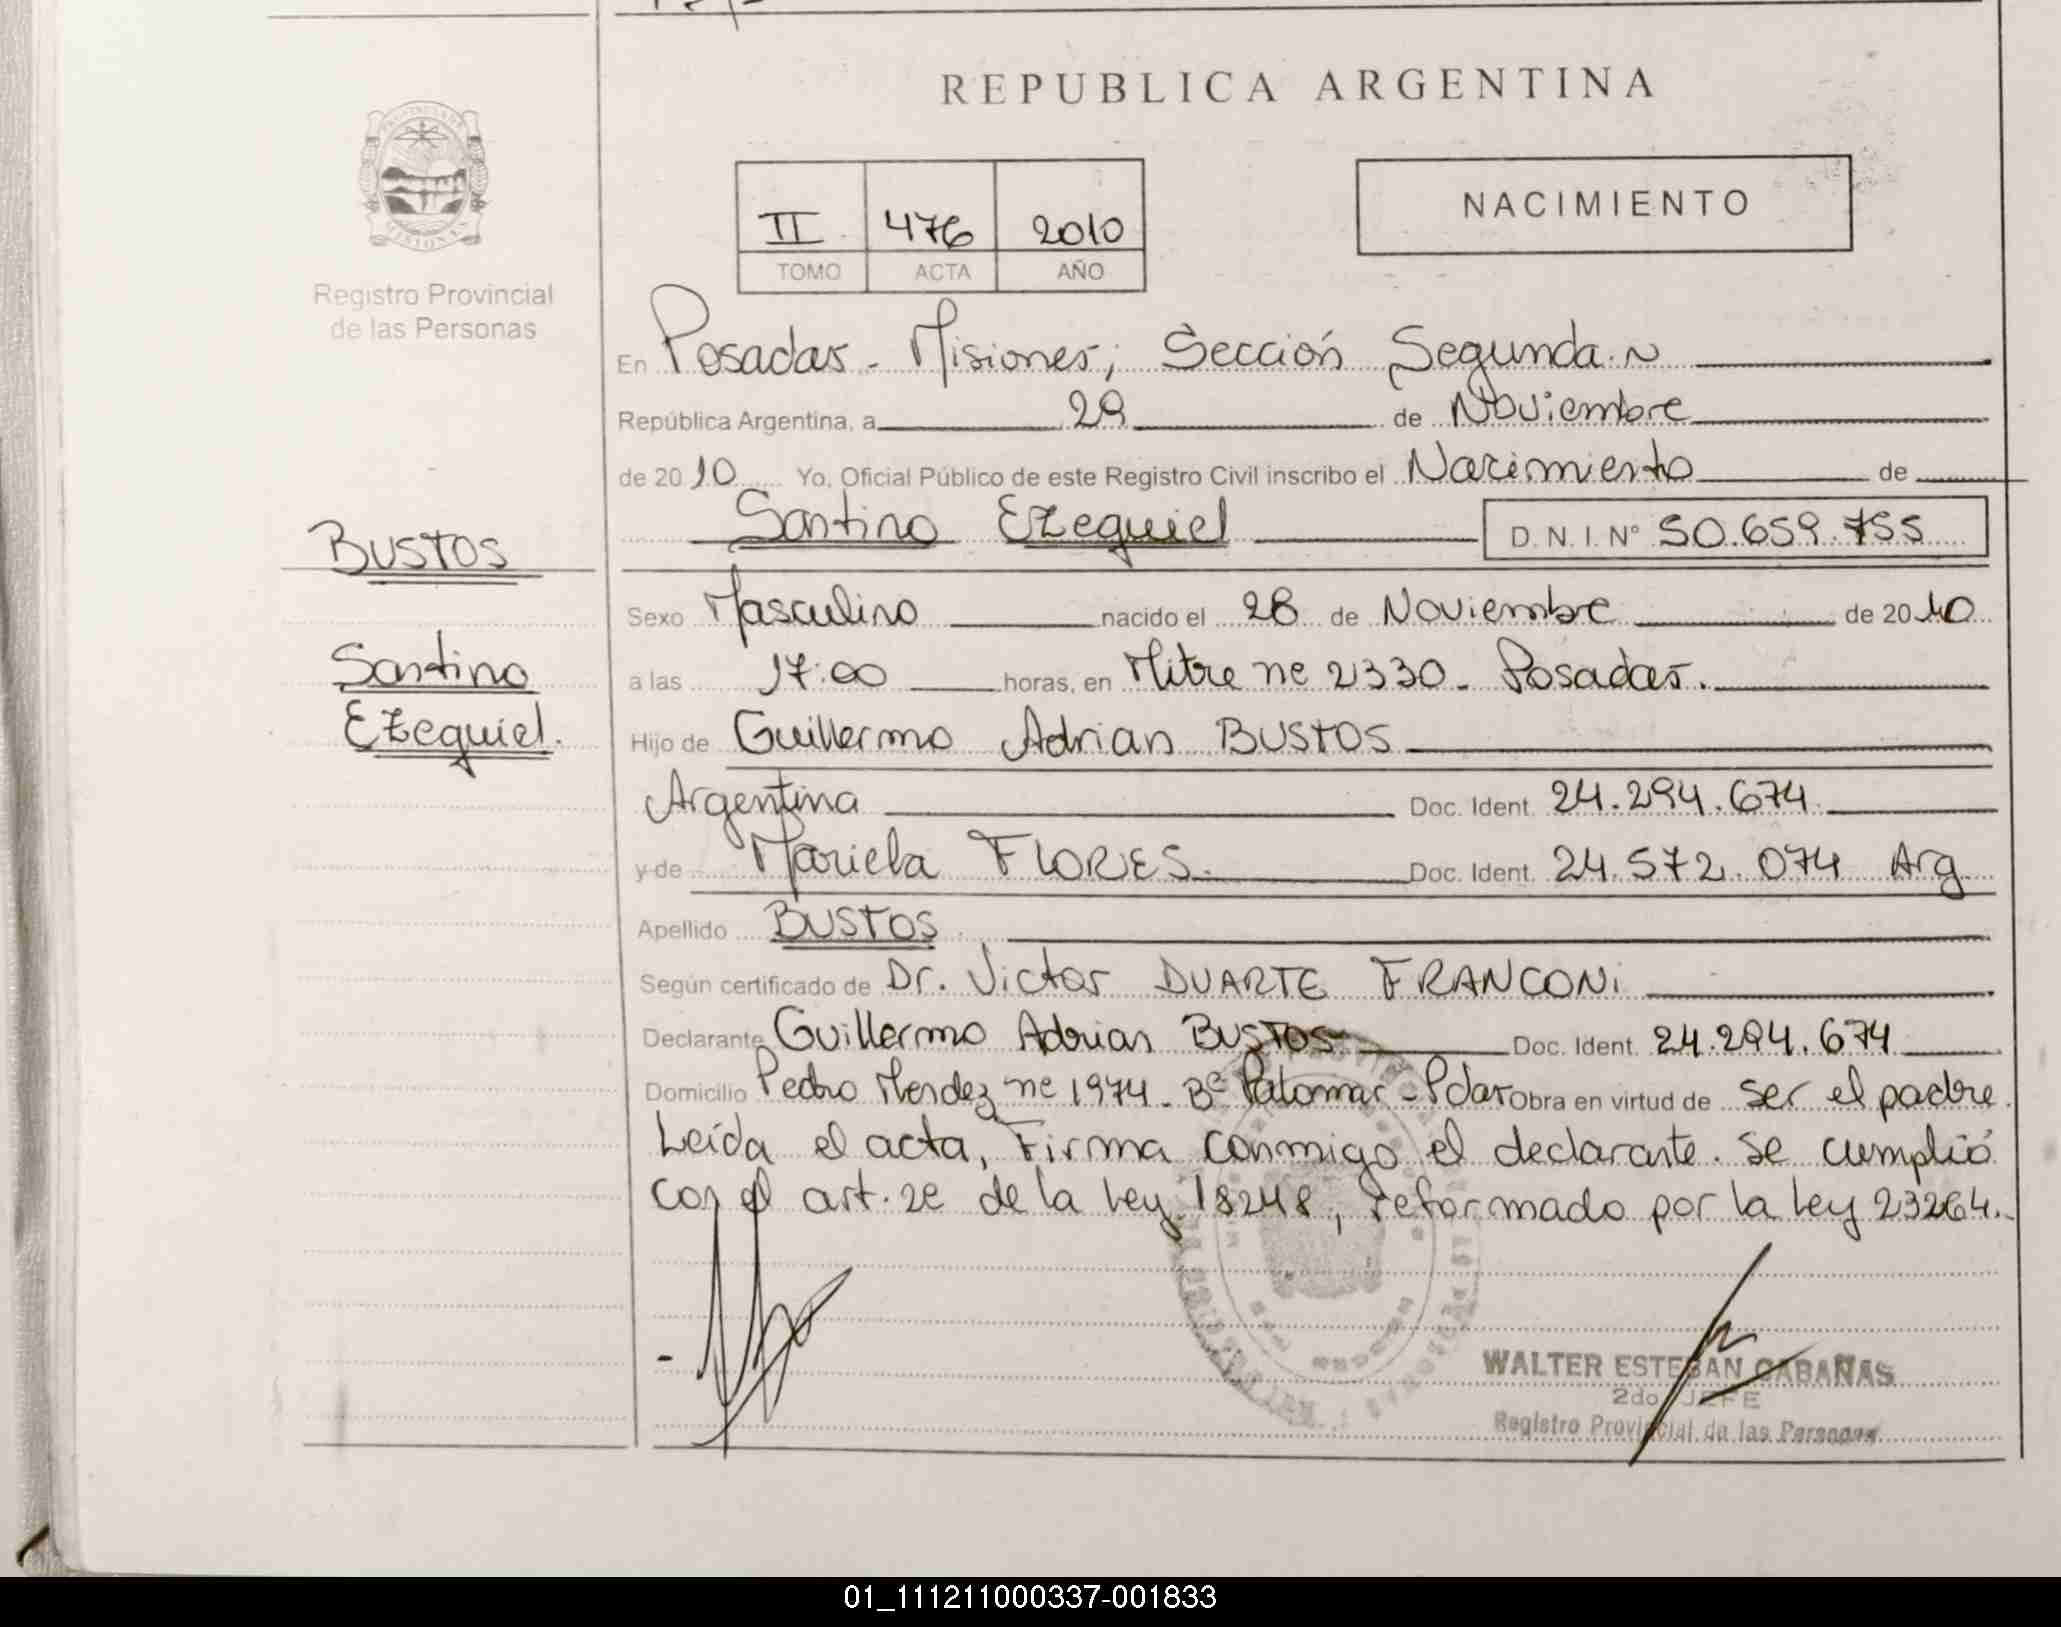 REPUBLICA ARGENTINA
NACIMIENTO
II 476 2010
TOMO ACTA AÑO
Registro Provincial
de las Personas
En Posadas - Misiones; Sección Segunda.~
República Argentina, a 29 de Noviembre
de 2010 Yo, Oficial Público de este Registro Civil inscribo el Nacimiento de
Santino Ezequiel D.N.I.Nº 50.659.755
BUSTOS
Santino
Ezequiel.
Sexo Masculino nacido el 28 de Noviembre de 2010
a las 17:00 horas, en Mitre nº 2330 - Posadas.
Hijo de Guillermo Adrian BUSTOS
Argentina Doc. Ident. 24.294.674
y de Mariela FLORES. Doc. Ident. 24.572.074 Arg
Apellido BUSTOS
Según certificado de Dr. Victor DUARTE FRANCONi
Declarante Guillermo Adrian BUSTOS Doc. Ident. 24.294.674
Domicilio Pedro Mendez nº 1974 - Bº Palomar - Pdas Obra en virtud de ser el padre.
Leída el acta, Firma conmigo el declarante. Se cumplió
con el art. 2º de la Ley 18248, reformado por la Ley 23264.
WALTER ESTEBAN CABAÑAS
2do JEFE
Registro Provincial de las Personas
01_111211000337-001833